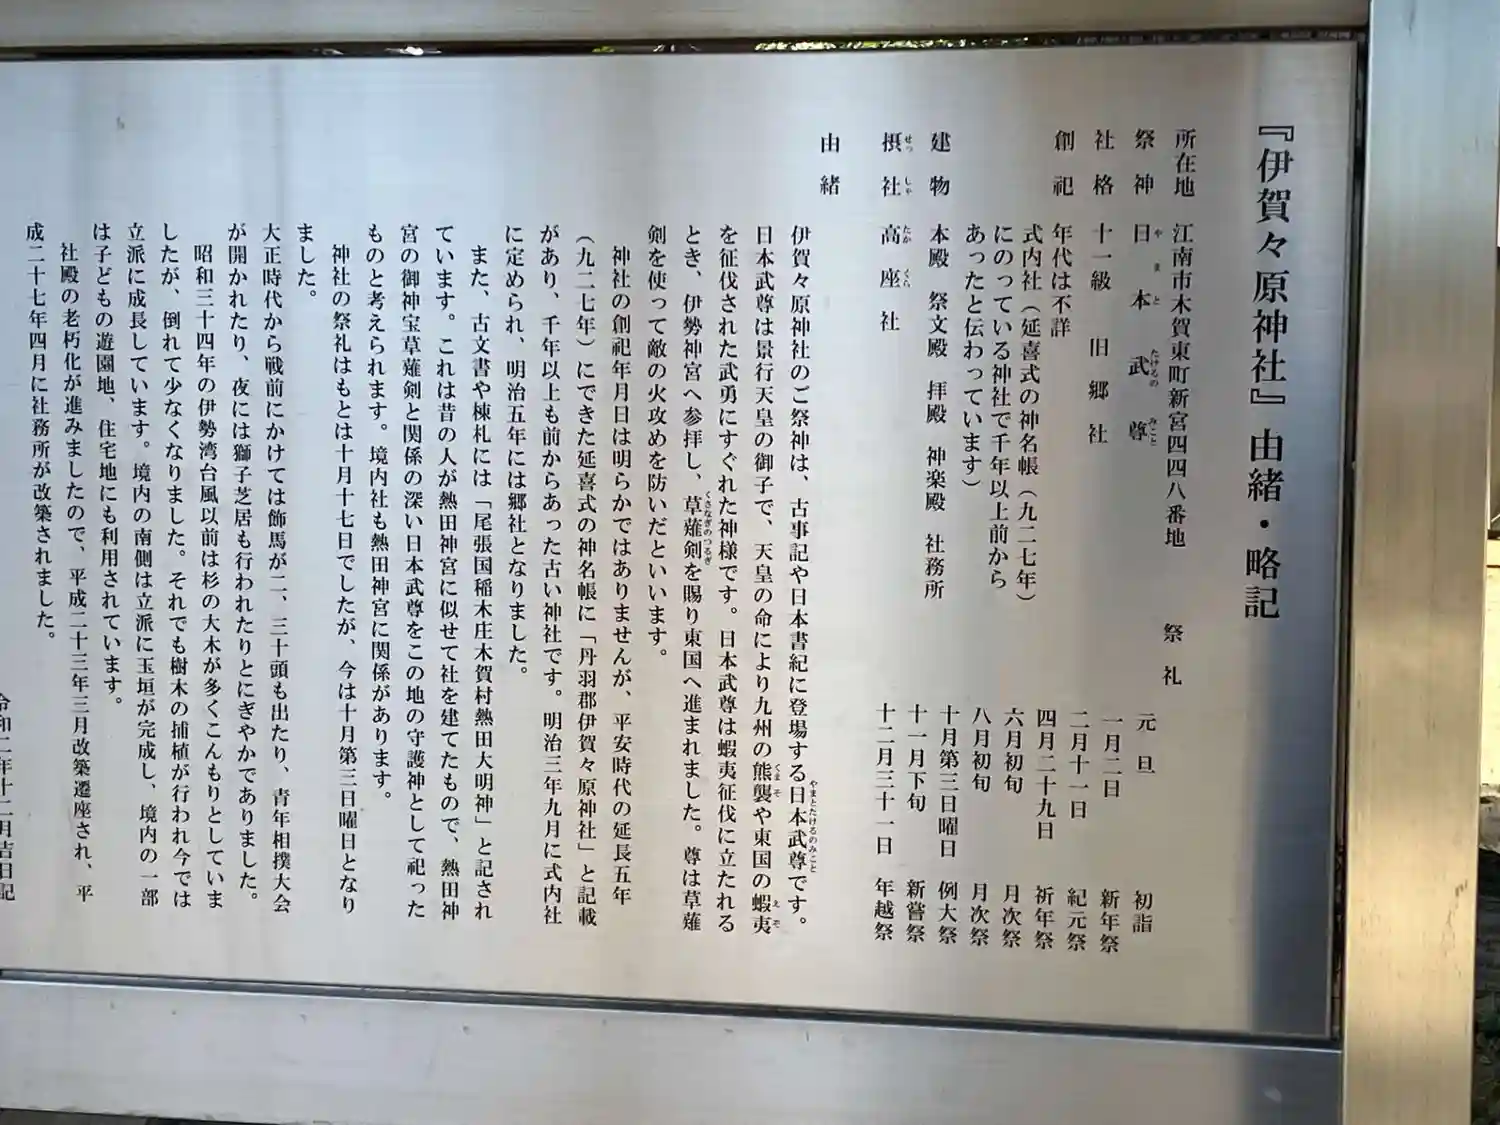 『伊賀々原神社』由緒・略記
所在地　江南市木賀東町新宮四四八番地
祭神　日本武尊
やまとたけるのみこと
社格　十一級　旧郷社
創祀　年代は不詳
式内社（延喜式の神名帳（九二七年）
にのっている神社で千年以上前から
あったと伝わっています）
建物　本殿　祭文殿　拝殿　神楽殿　社務所
摂社　高座社
せっしゃ　たかくら
祭礼
元旦　初詣
一月二日　新年祭
二月十一日　紀元祭
四月二十九日　祈年祭
六月初旬　月次祭
八月初旬　月次祭
十月第三日曜日　例大祭
十一月下旬　新嘗祭
十二月三十一日　年越祭
由緒
伊賀々原神社のご祭神は、古事記や日本書紀に登場する日本武尊です。
やまとたけるのみこと
日本武尊は景行天皇の御子で、天皇の命により九州の熊襲や東国の蝦夷
くまそ　えぞ
を征伐された武勇にすぐれた神様です。日本武尊は蝦夷征伐に立たれる
とき、伊勢神宮へ参拝し、草薙剣を賜り東国へ進まれました。尊は草薙
くさなぎのつるぎ
剣を使って敵の火攻めを防いだといいます。
神社の創祀年月日は明らかではありませんが、平安時代の延長五年
（九二七年）にできた延喜式の神名帳に「丹羽郡伊賀々原神社」と記載
があり、千年以上も前からあった古い神社です。明治三年九月に式内社
に定められ、明治五年には郷社となりました。
また、古文書や棟札には「尾張国稲木庄木賀村熱田大明神」と記され
ています。これは昔の人が熱田神宮に似せて社を建てたもので、熱田神
宮の御神宝草薙剣と関係の深い日本武尊をこの地の守護神として祀った
ものと考えられます。境内社も熱田神宮に関係があります。
神社の祭礼はもとは十月十七日でしたが、今は十月第三日曜日となり
ました。
大正時代から戦前にかけては飾馬が二、三十頭も出たり、青年相撲大会
が開かれたり、夜には獅子芝居も行われたりとにぎやかでありました。
昭和三十四年の伊勢湾台風以前は杉の大木が多くこんもりとしていま
したが、倒れて少なくなりました。それでも樹木の捕植が行われ今では
立派に成長しています。境内の南側は立派に玉垣が完成し、境内の一部
は子どもの遊園地、住宅地にも利用されています。
社殿の老朽化が進みましたので、平成二十三年三月改築遷座され、平
成二十七年四月に社務所が改築されました。
令和二年十二月吉日記